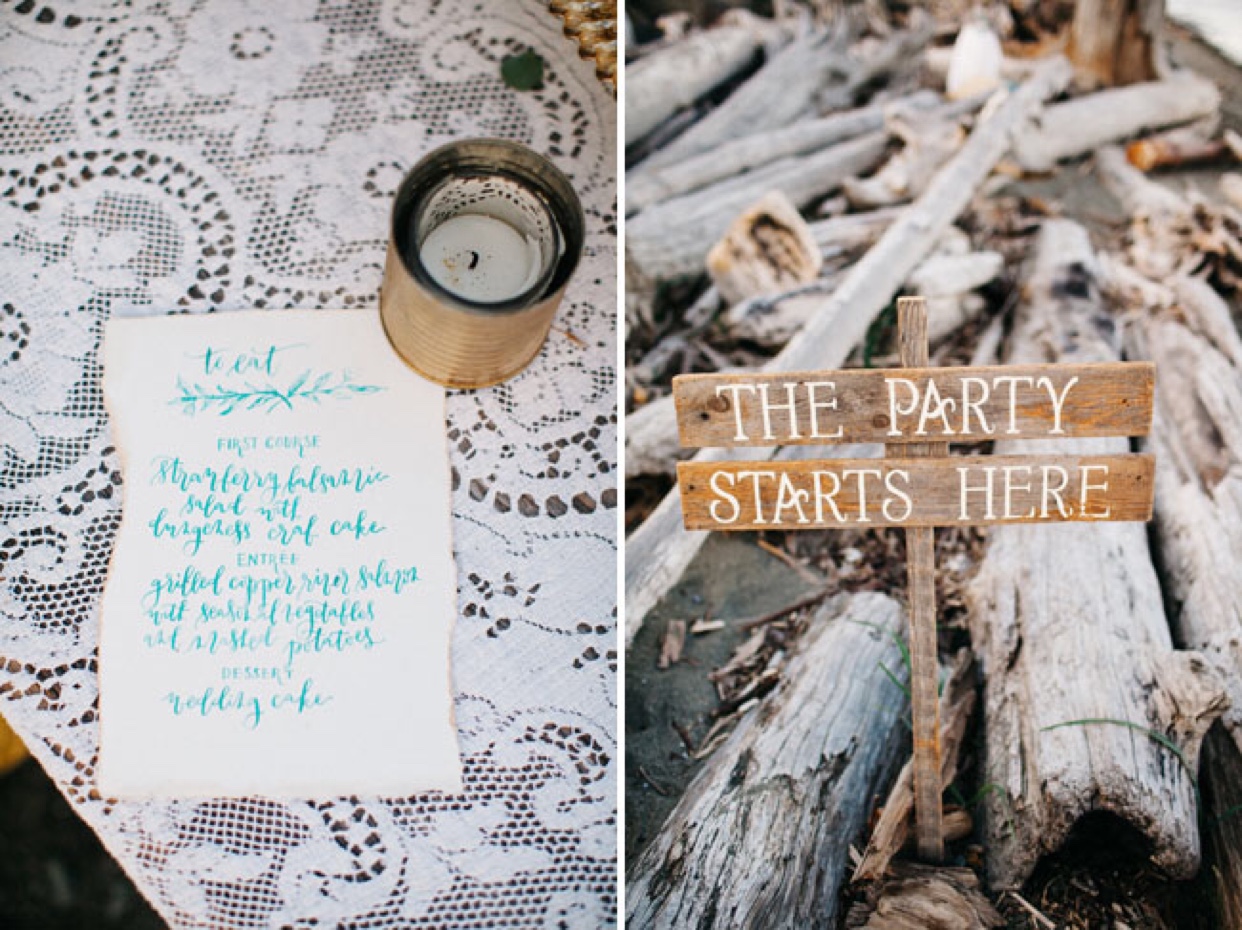 to eat
FIRST COURSE
strawberry balsamic
salad with
dungeness crab cake
ENTREE
grilled copper river salmon
with seasonal vegetables
and mashed potatoes
DESSERT
wedding cake
THE PARTY
STARTS HERE